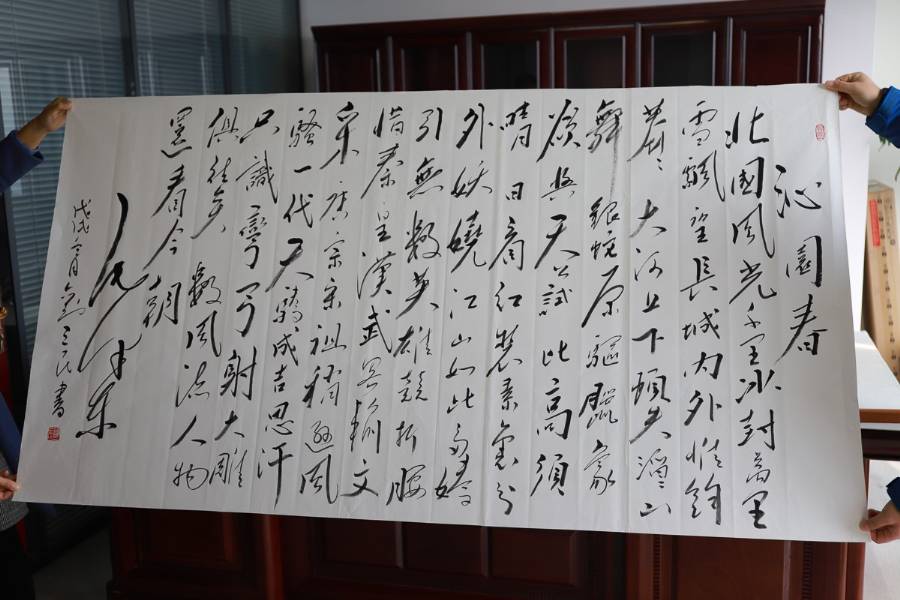 沁園春
北國風光千里冰封萬里
雪飄望長城内外惟餘
莽〻大河上下頓失滔〻山
舞銀蛇原驅臘象
欲與天公試比高須
晴日看紅裝素裹分
外妖嬈江山如此多嬌
引無數英雄競折腰
惜秦皇漢武略輸文
采唐宗宋祖稍遜風
騷一代天驕成吉思汗
只識彎弓射大雕
俱往矣數風流人物
還看今朝
毛澤東
戊戌 書